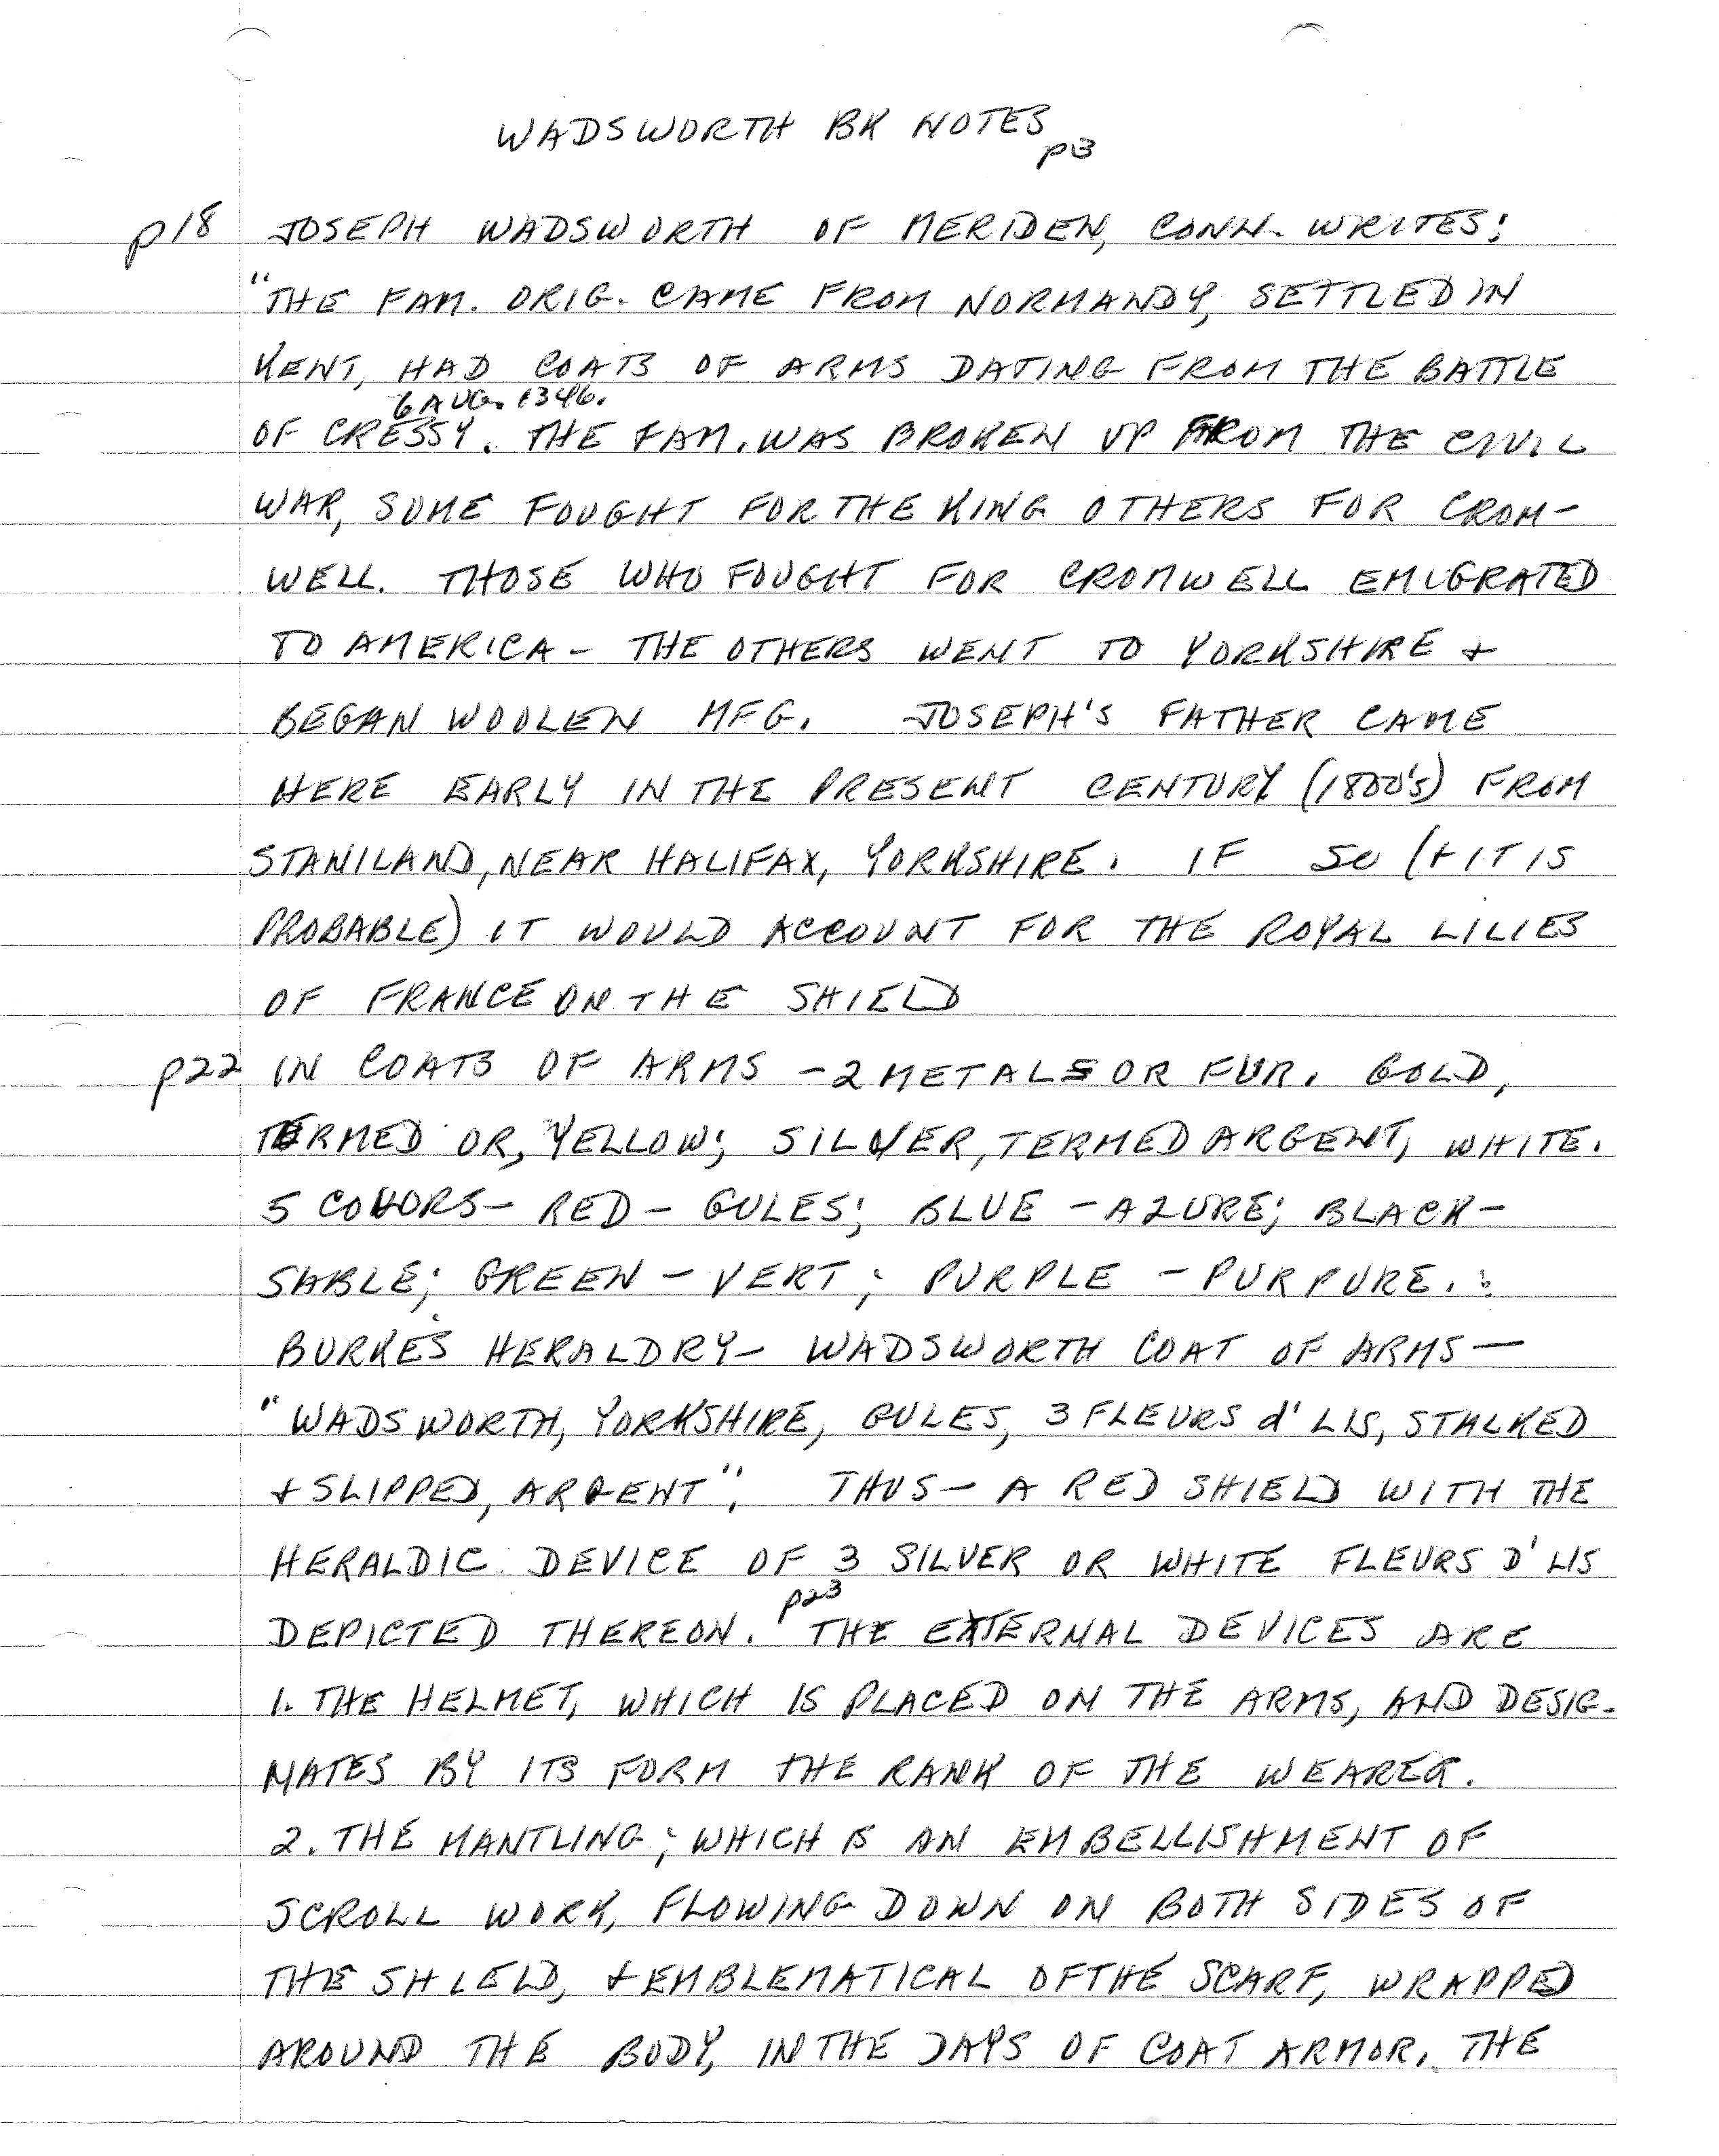 WADSWORTH BK NOTES
p3
p18 JOSEPH WADSWORTH OF MERIDEN, CONN. WRITES:
"THE FAM. ORIG. CAME FROM NORMANDY, SETTLED IN
KENT, HAD COATS OF ARMS DATING FROM THE BATTLE
6 AUG. 1346.
OF CRESSY. THE FAM. WAS BROKEN UP FROM THE CIVIL
WAR, SOME FOUGHT FOR THE KING OTHERS FOR CROM-
WELL. THOSE WHO FOUGHT FOR CROMWELL EMIGRATED
TO AMERICA - THE OTHERS WENT TO YORKSHIRE +
BEGAN WOOLEN MFG. JOSEPH'S FATHER CAME
HERE EARLY IN THE PRESENT CENTURY (1800's) FROM
STANILAND, NEAR HALIFAX, YORKSHIRE. IF SO (+ IT IS
PROBABLE) IT WOULD ACCOUNT FOR THE ROYAL LILIES
OF FRANCE ON THE SHIELD
p22 IN COATS OF ARMS - 2 METALS OR FUR. GOLD,
TERMED OR, YELLOW; SILVER, TERMED ARGENT, WHITE.
5 COLORS - RED - GULES; BLUE - AZURE; BLACK -
SABLE; GREEN - VERT; PURPLE - PURPURE.:
BURKE'S HERALDRY - WADSWORTH COAT OF ARMS -
"WADSWORTH, YORKSHIRE, GULES, 3 FLEURS d' LIS, STALKED
+ SLIPPED, ARGENT". THUS - A RED SHIELD WITH THE
HERALDIC DEVICE OF 3 SILVER OR WHITE FLEURS D' LIS
p23
DEPICTED THEREON. "THE EXTERNAL DEVICES ARE
1. THE HELMET, WHICH IS PLACED ON THE ARMS, AND DESIG-
NATES BY ITS FORM THE RANK OF THE WEARER.
2. THE MANTLING; WHICH IS AN EMBELLISHMENT OF
SCROLL WORK, FLOWING DOWN ON BOTH SIDES OF
THE SHIELD, + EMBLEMATICAL OF THE SCARF, WRAPPED
AROUND THE BODY, IN THE DAYS OF COAT ARMOR. THE